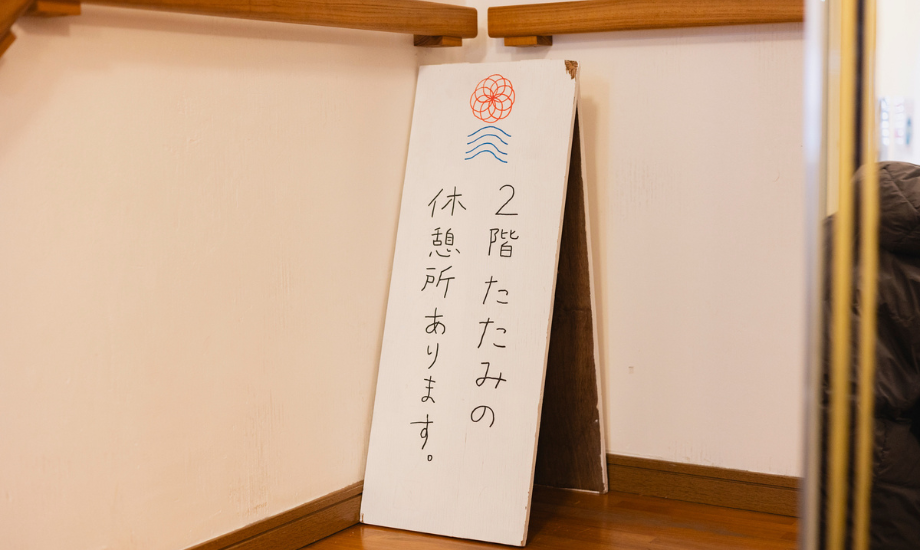 2階たたみの
休憩所あります。